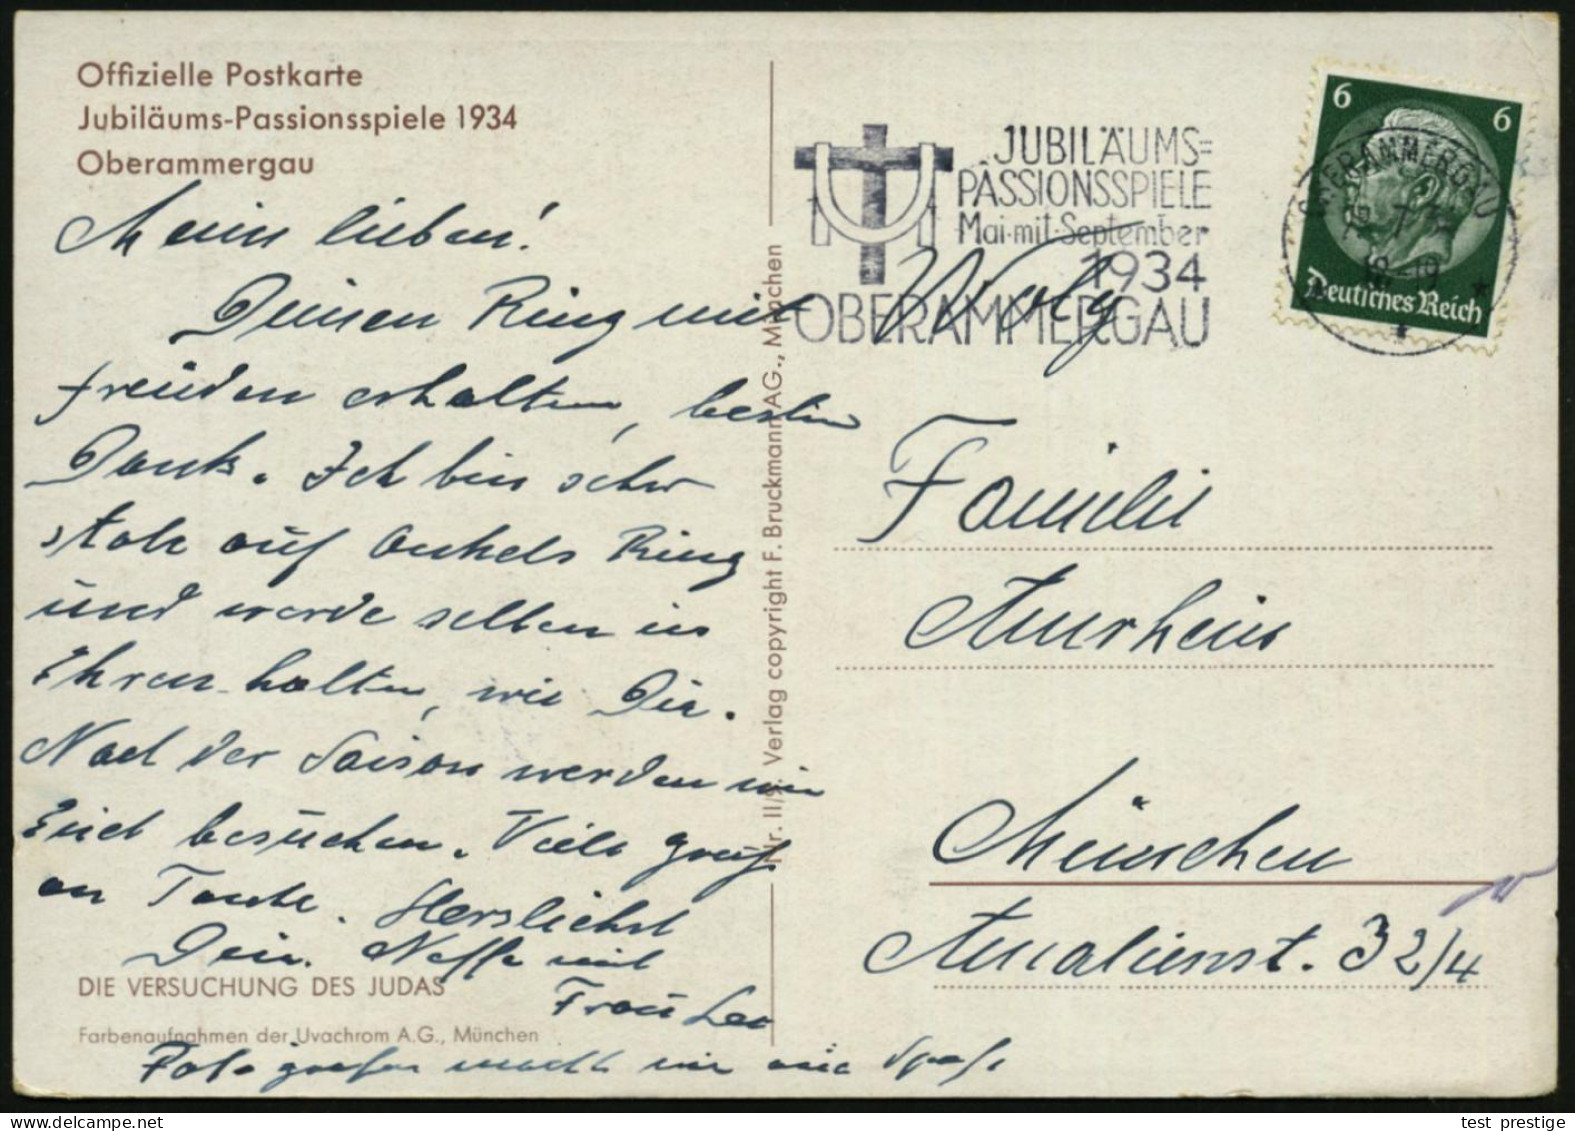 Offizielle Postkarte
Jubiläums-Passionsspiele 1934
Oberammergau
Mein lieben!
Deinen Ring mit
freuden erhalten, besten
Dank. Ich bin sehr
stolz auf Onkels Ring
und werde selben in
Ehren halten, wie Die.
Nach der Saison werden wir
Euch besuchen. Viele Grüße
an Tante. Herzlichst
Dein Neffe mit
Frau
DIE VERSUCHUNG DES JUDAS
Farbenaufnahmen der Uvachrom A.G., München
macht mir Spaß
Nr. II/9. Verlag copyright F. Bruckmann AG., München
JUBILÄUMS=
PASSIONSSPIELE
Mai mit September
1934
OBERAMMERGAU
6 6
Deutsches Reich
OBERAMMERGAU
18-19
Familie
Amrhein
München
Amalienst. 32/4
test prestige